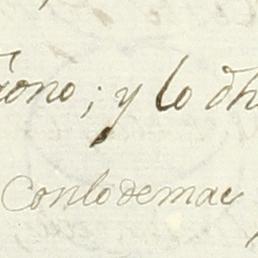 rono; y lo dh
Conlodemae